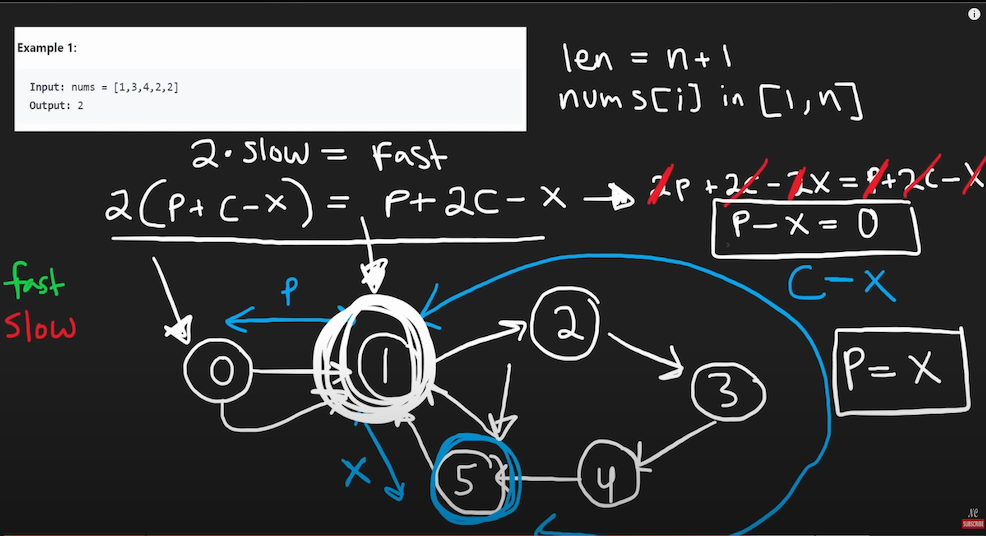 Example 1:
Input: nums = [1,3,4,2,2]
Output: 2
len = n+1
nums[i] in [1,n]
2·slow = fast
2(P+C-X) = P+2C-X → 2P+2C-2X=P+2C-X
P-X=0
C-X
fast
slow
P
0
1
2
3
4
5
X
P=X
NC
SUBSCRIBE